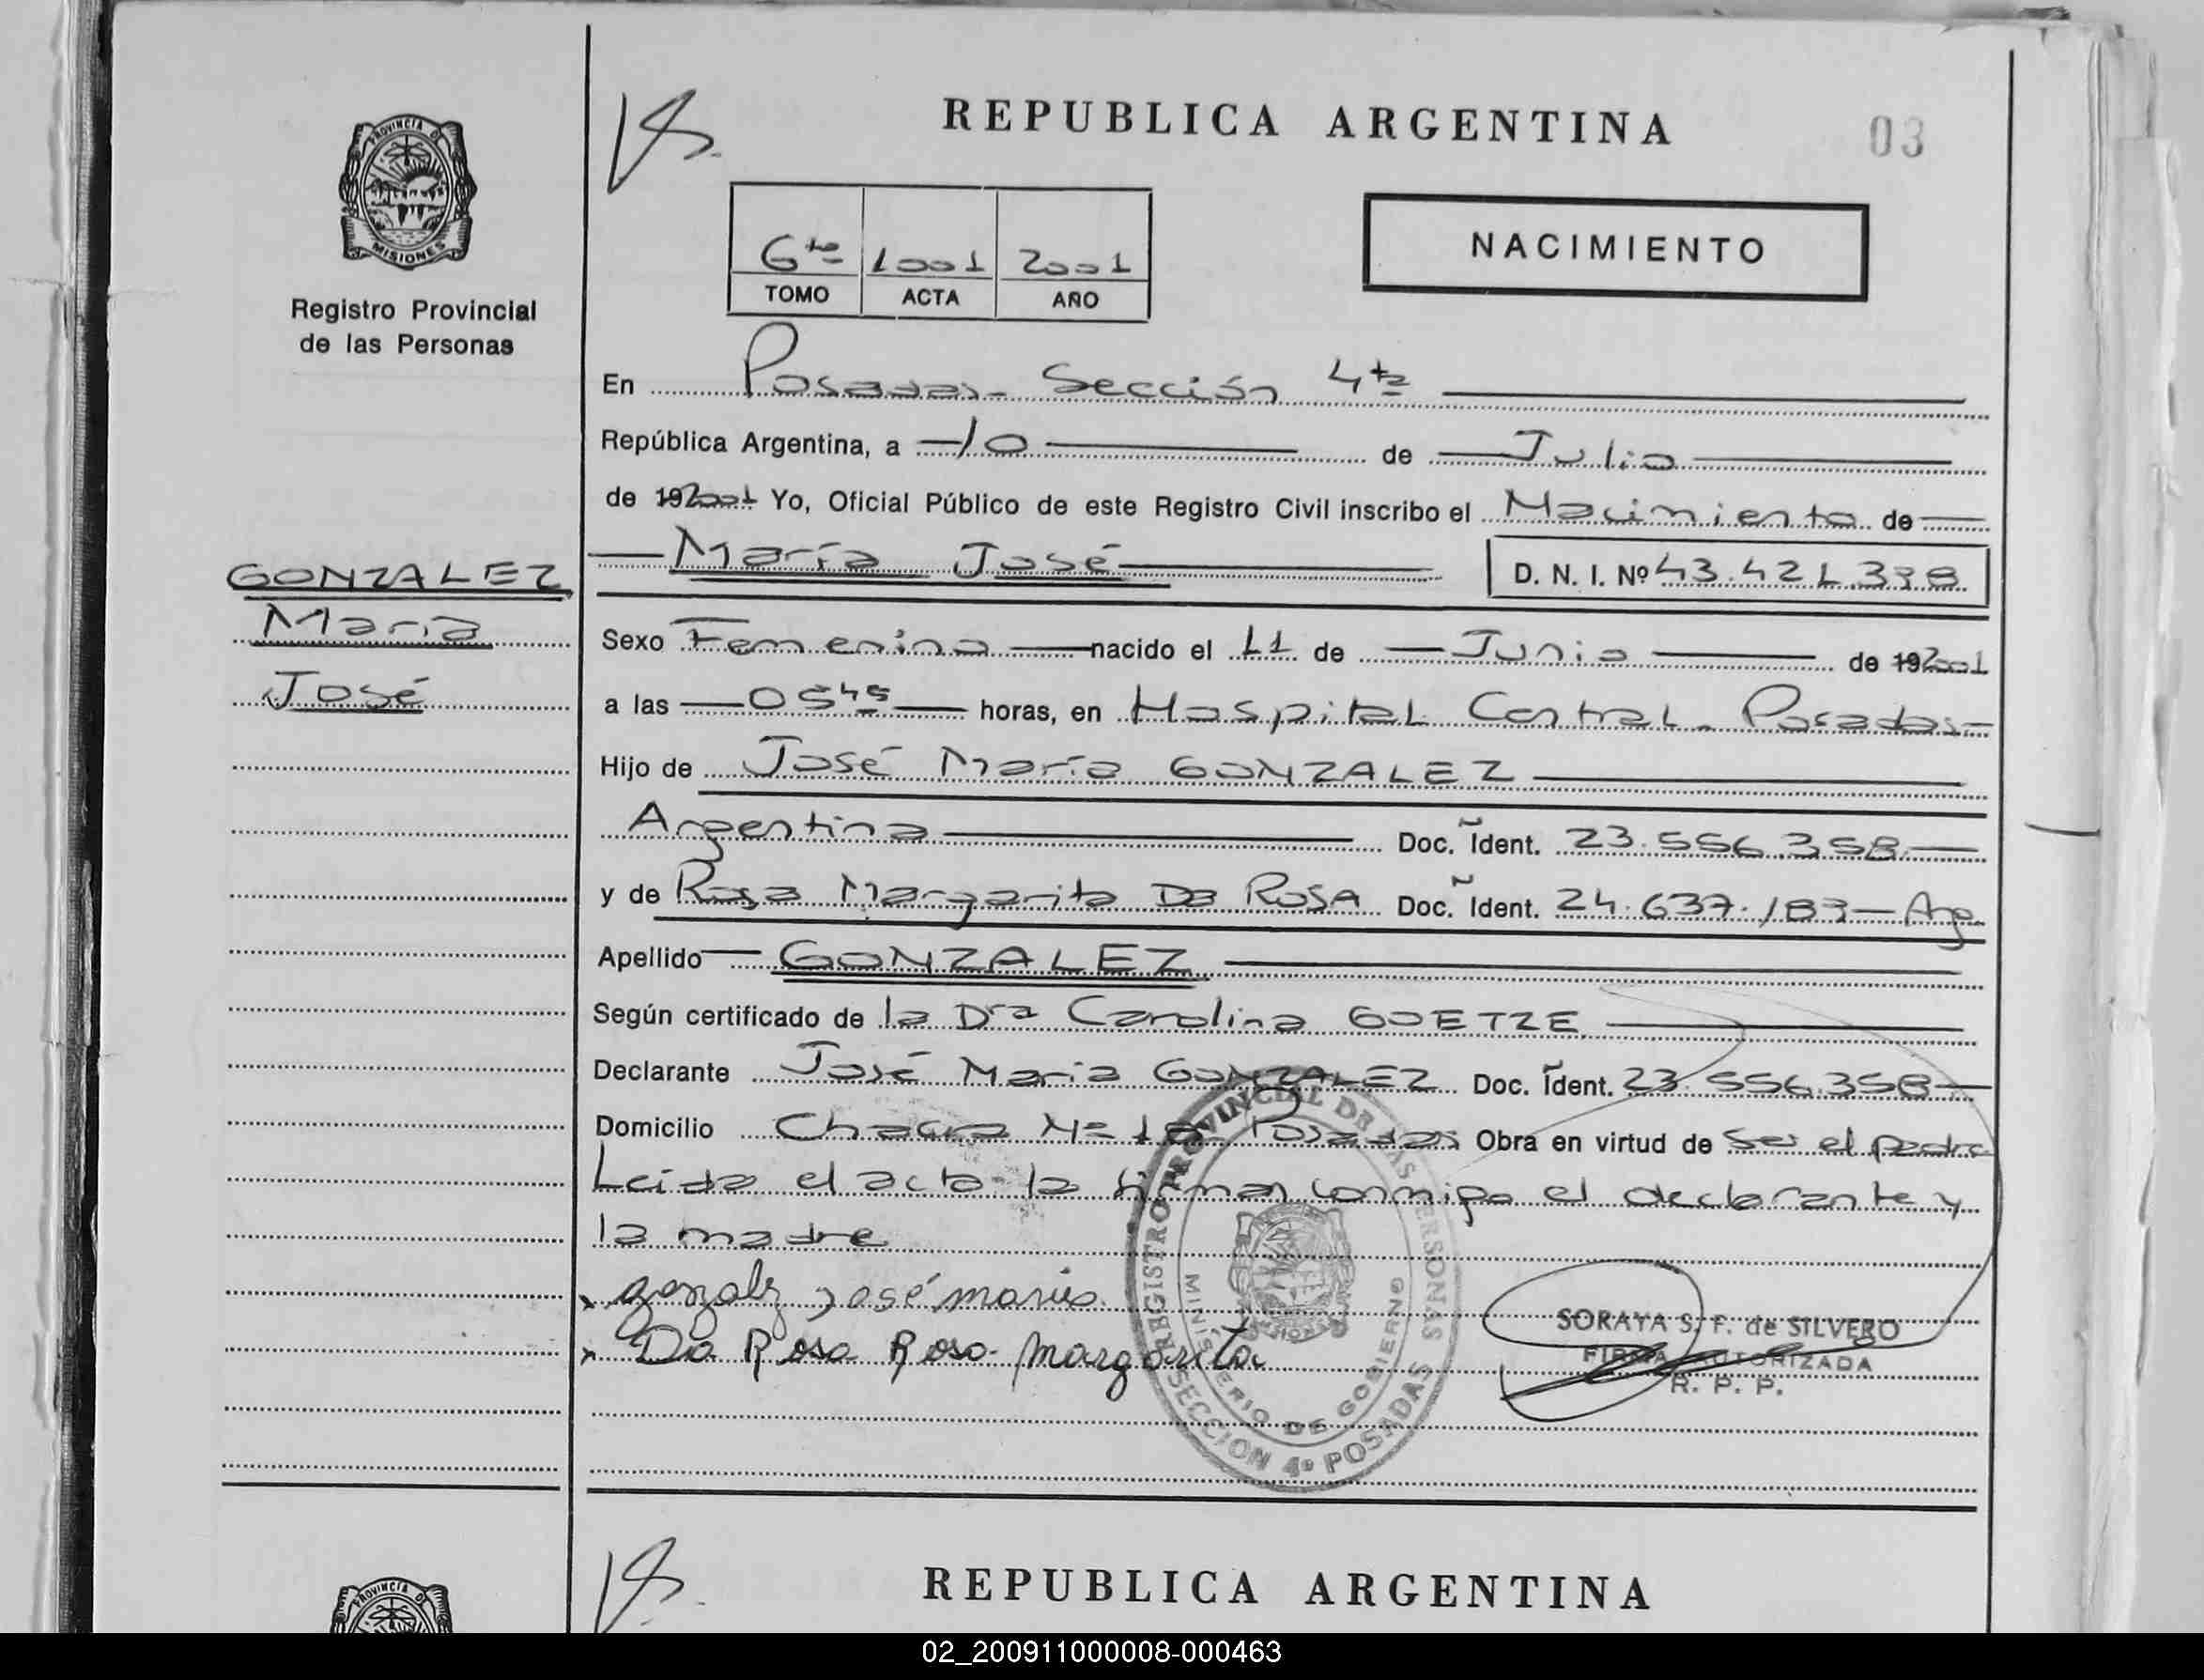 PROVINCIA DE
MISIONES
Registro Provincial
de las Personas
REPUBLICA ARGENTINA
03
6to 1001 2001
TOMO ACTA AÑO
NACIMIENTO
En Posadas- Sección 4ta
República Argentina, a 10 de Julio
de 192001 Yo, Oficial Público de este Registro Civil inscribo el Nacimiento de
María José D. N. I. Nº 43.421.338
GONZALEZ
María
José
Sexo Femenino nacido el 11 de Junio de 192001
a las 05 45 horas, en Hospital Central- Posadas-
Hijo de José María GONZALEZ
Argentina Doc. Ident. 23.556.358
y de Rosa Margarita DA ROSA Doc. Ident. 24.637.183- Arg
Apellido GONZALEZ
Según certificado de la Dra Carolina GOETZE
Declarante José María GONZALEZ Doc. Ident. 23.556.358
Domicilio Chacra Nº Posadas Obra en virtud de ser el padre
Leída el acta la firman conmigo el declarante y
la madre
x gonzalz José maria
x Da Rosa Rosa margarita
REGISTRO PROVINCIAL DE LAS PERSONAS
MINISTERIO DE GOBIERNO
SECCION 4ª POSADAS
SORAYA S. F. de SILVERO
FIRMA AUTORIZADA
R. P. P.
PROVINCIA DE
REPUBLICA ARGENTINA
02_200911000008-000463